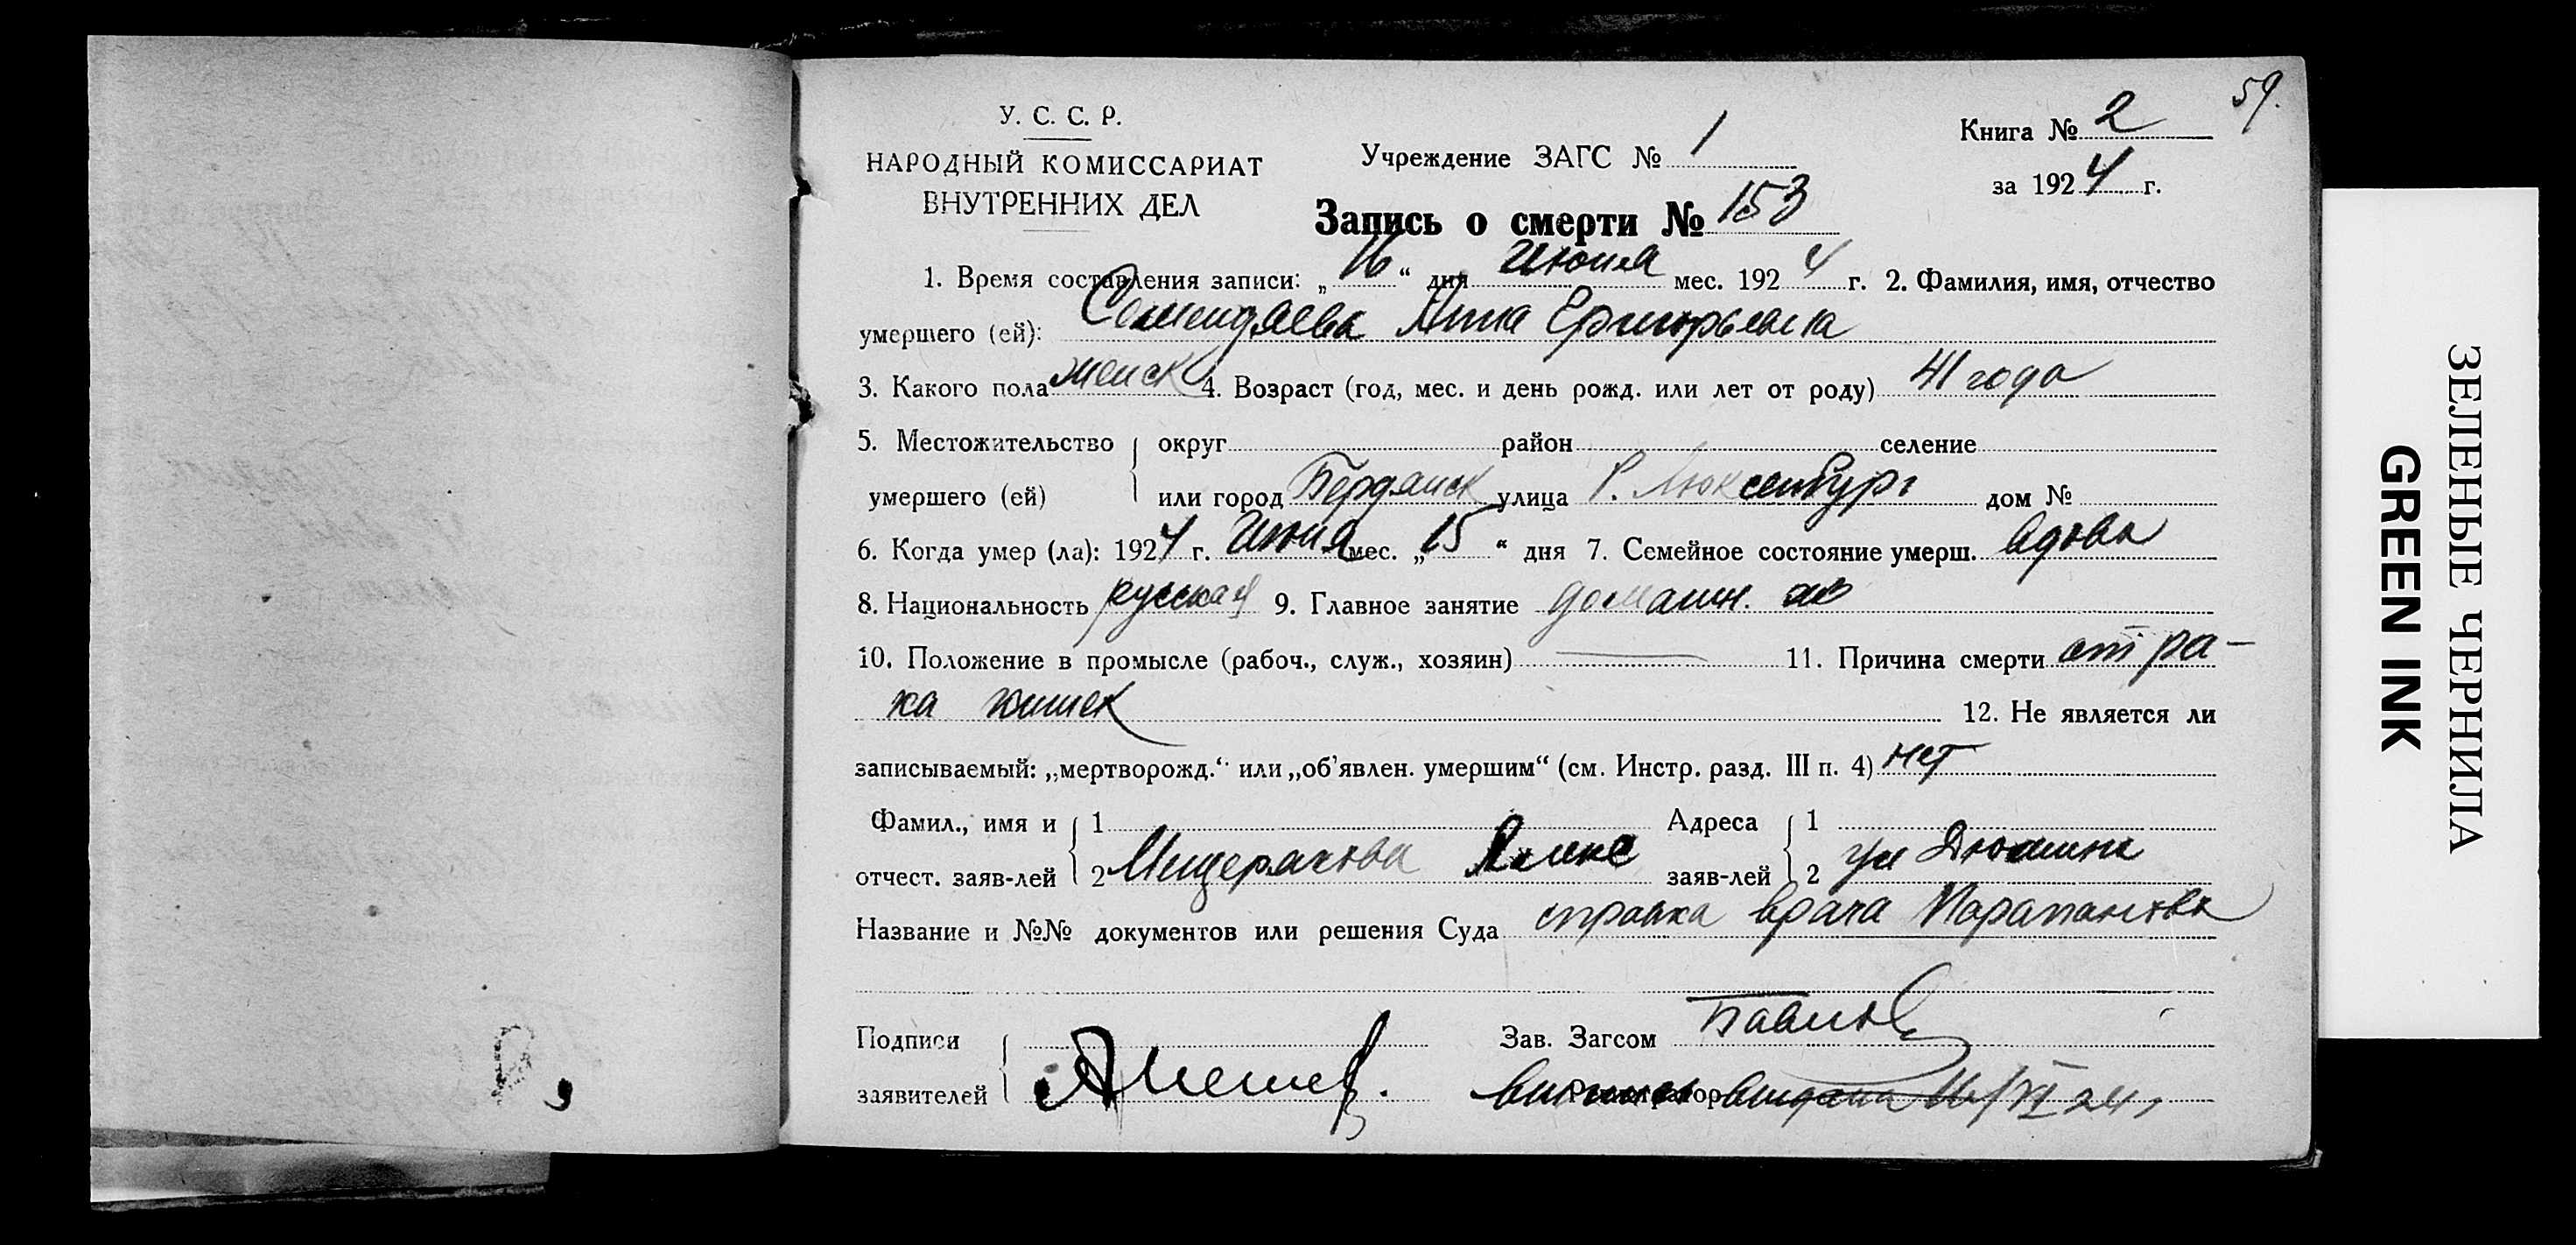 59.
У. С. С. Р.
НАРОДНЫЙ КОМИССАРИАТ
ВНУТРЕННИХ ДЕЛ
Учреждение ЗАГС № 1
Книга № 2
за 1924 г.
Запись о смерти № 153
1. Время составления записи: „16“ дня Июня мес. 1924 г. 2. Фамилия, имя, отчество
умершего (ей): Семендяева Анна Григорьевна
3. Какого пола женск 4. Возраст (год, мес. и день рожд. или лет от роду) 41 года
5. Местожительство округ район селение
умершего (ей) или город Бердянск улица Р. Люксембург дом №
6. Когда умер (ла): 1924 г. Июня мес. „15“ дня 7. Семейное состояние умерш. вдова
8. Национальность русская 9. Главное занятие домашн. хоз
10. Положение в промысле (рабоч., служ., хозяин) — 11. Причина смерти от ра-
ка кишек 12. Не является ли
записываемый: „мертворожд.“ или „об’явлен. умершим“ (см. Инстр. разд. III п. 4) нет
Фамил., имя и 1 Адреса 1
отчест. заяв-лей 2 Мещерякова заяв-лей 2 ул Дюмина
Название и №№ документов или решения Суда справка врача
Подписи Зав. Загсом
заявителей Регистратор выдана 16/VI 24 г
ЗЕЛЕНЫЕ ЧЕРНИЛА
GREEN INK